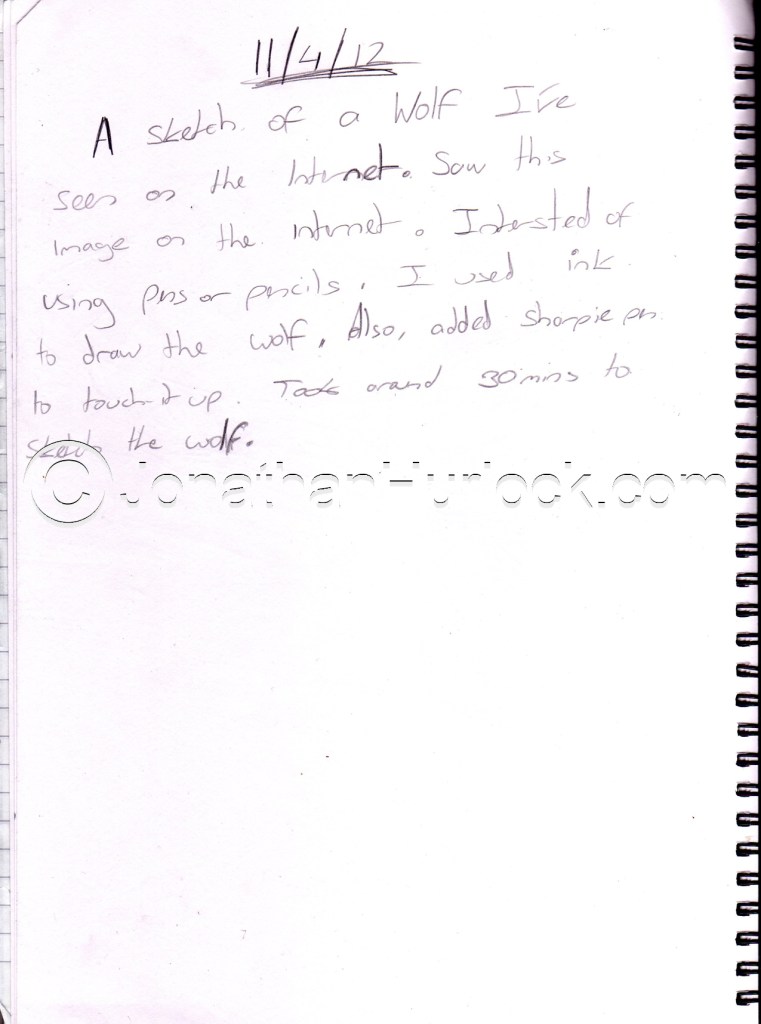 11/4/12
A sketch of a Wolf I've
seen on the Internet. Saw this
Image on the internet. Intersted of
using pens or pencils. I used ink
to draw the wolf. Also, added sharpie pen
to touch it up. Took around 30mins to
sketch the wolf.
© JonathanHurlock.com